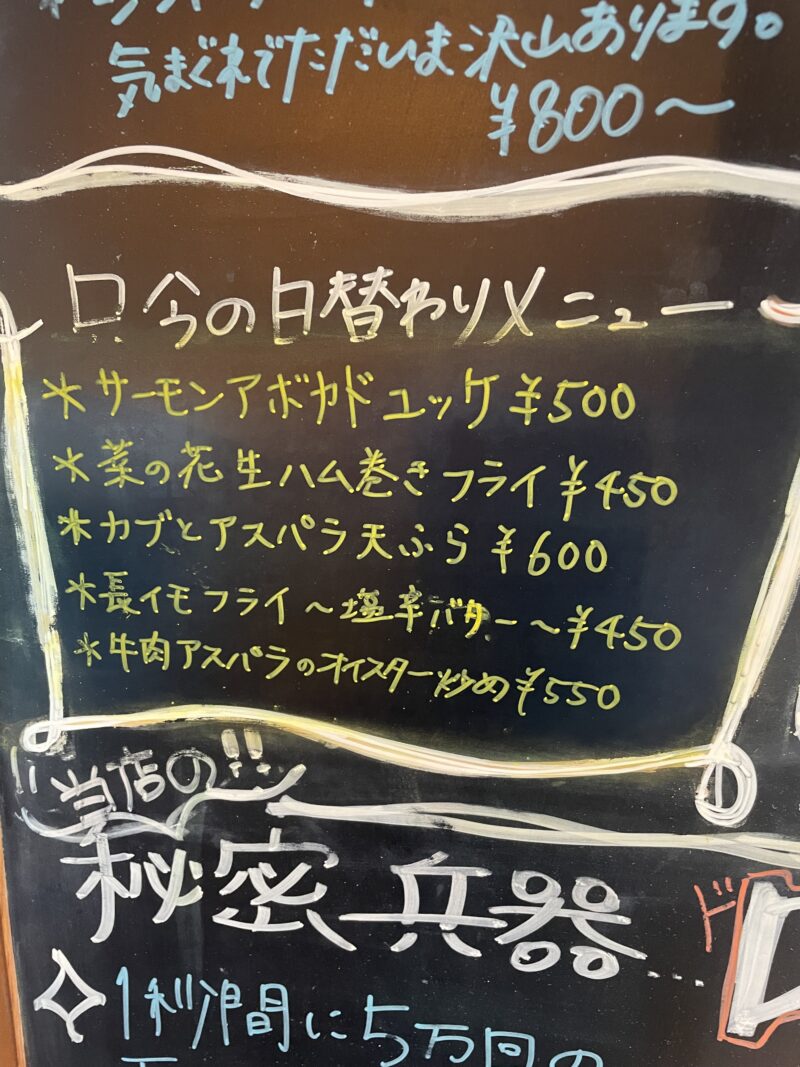 気まぐれでただいま沢山あります。
¥800〜
只今の日替わりメニュー
*サーモンアボカドユッケ ¥500
*菜の花生ハム巻きフライ ¥450
*カブとアスパラ天ぷら ¥600
*長イモフライ〜塩辛バター〜¥450
*牛肉アスパラのオイスター炒め¥550
当店の!!
秘密兵器...
ド
1秒間に5万回の